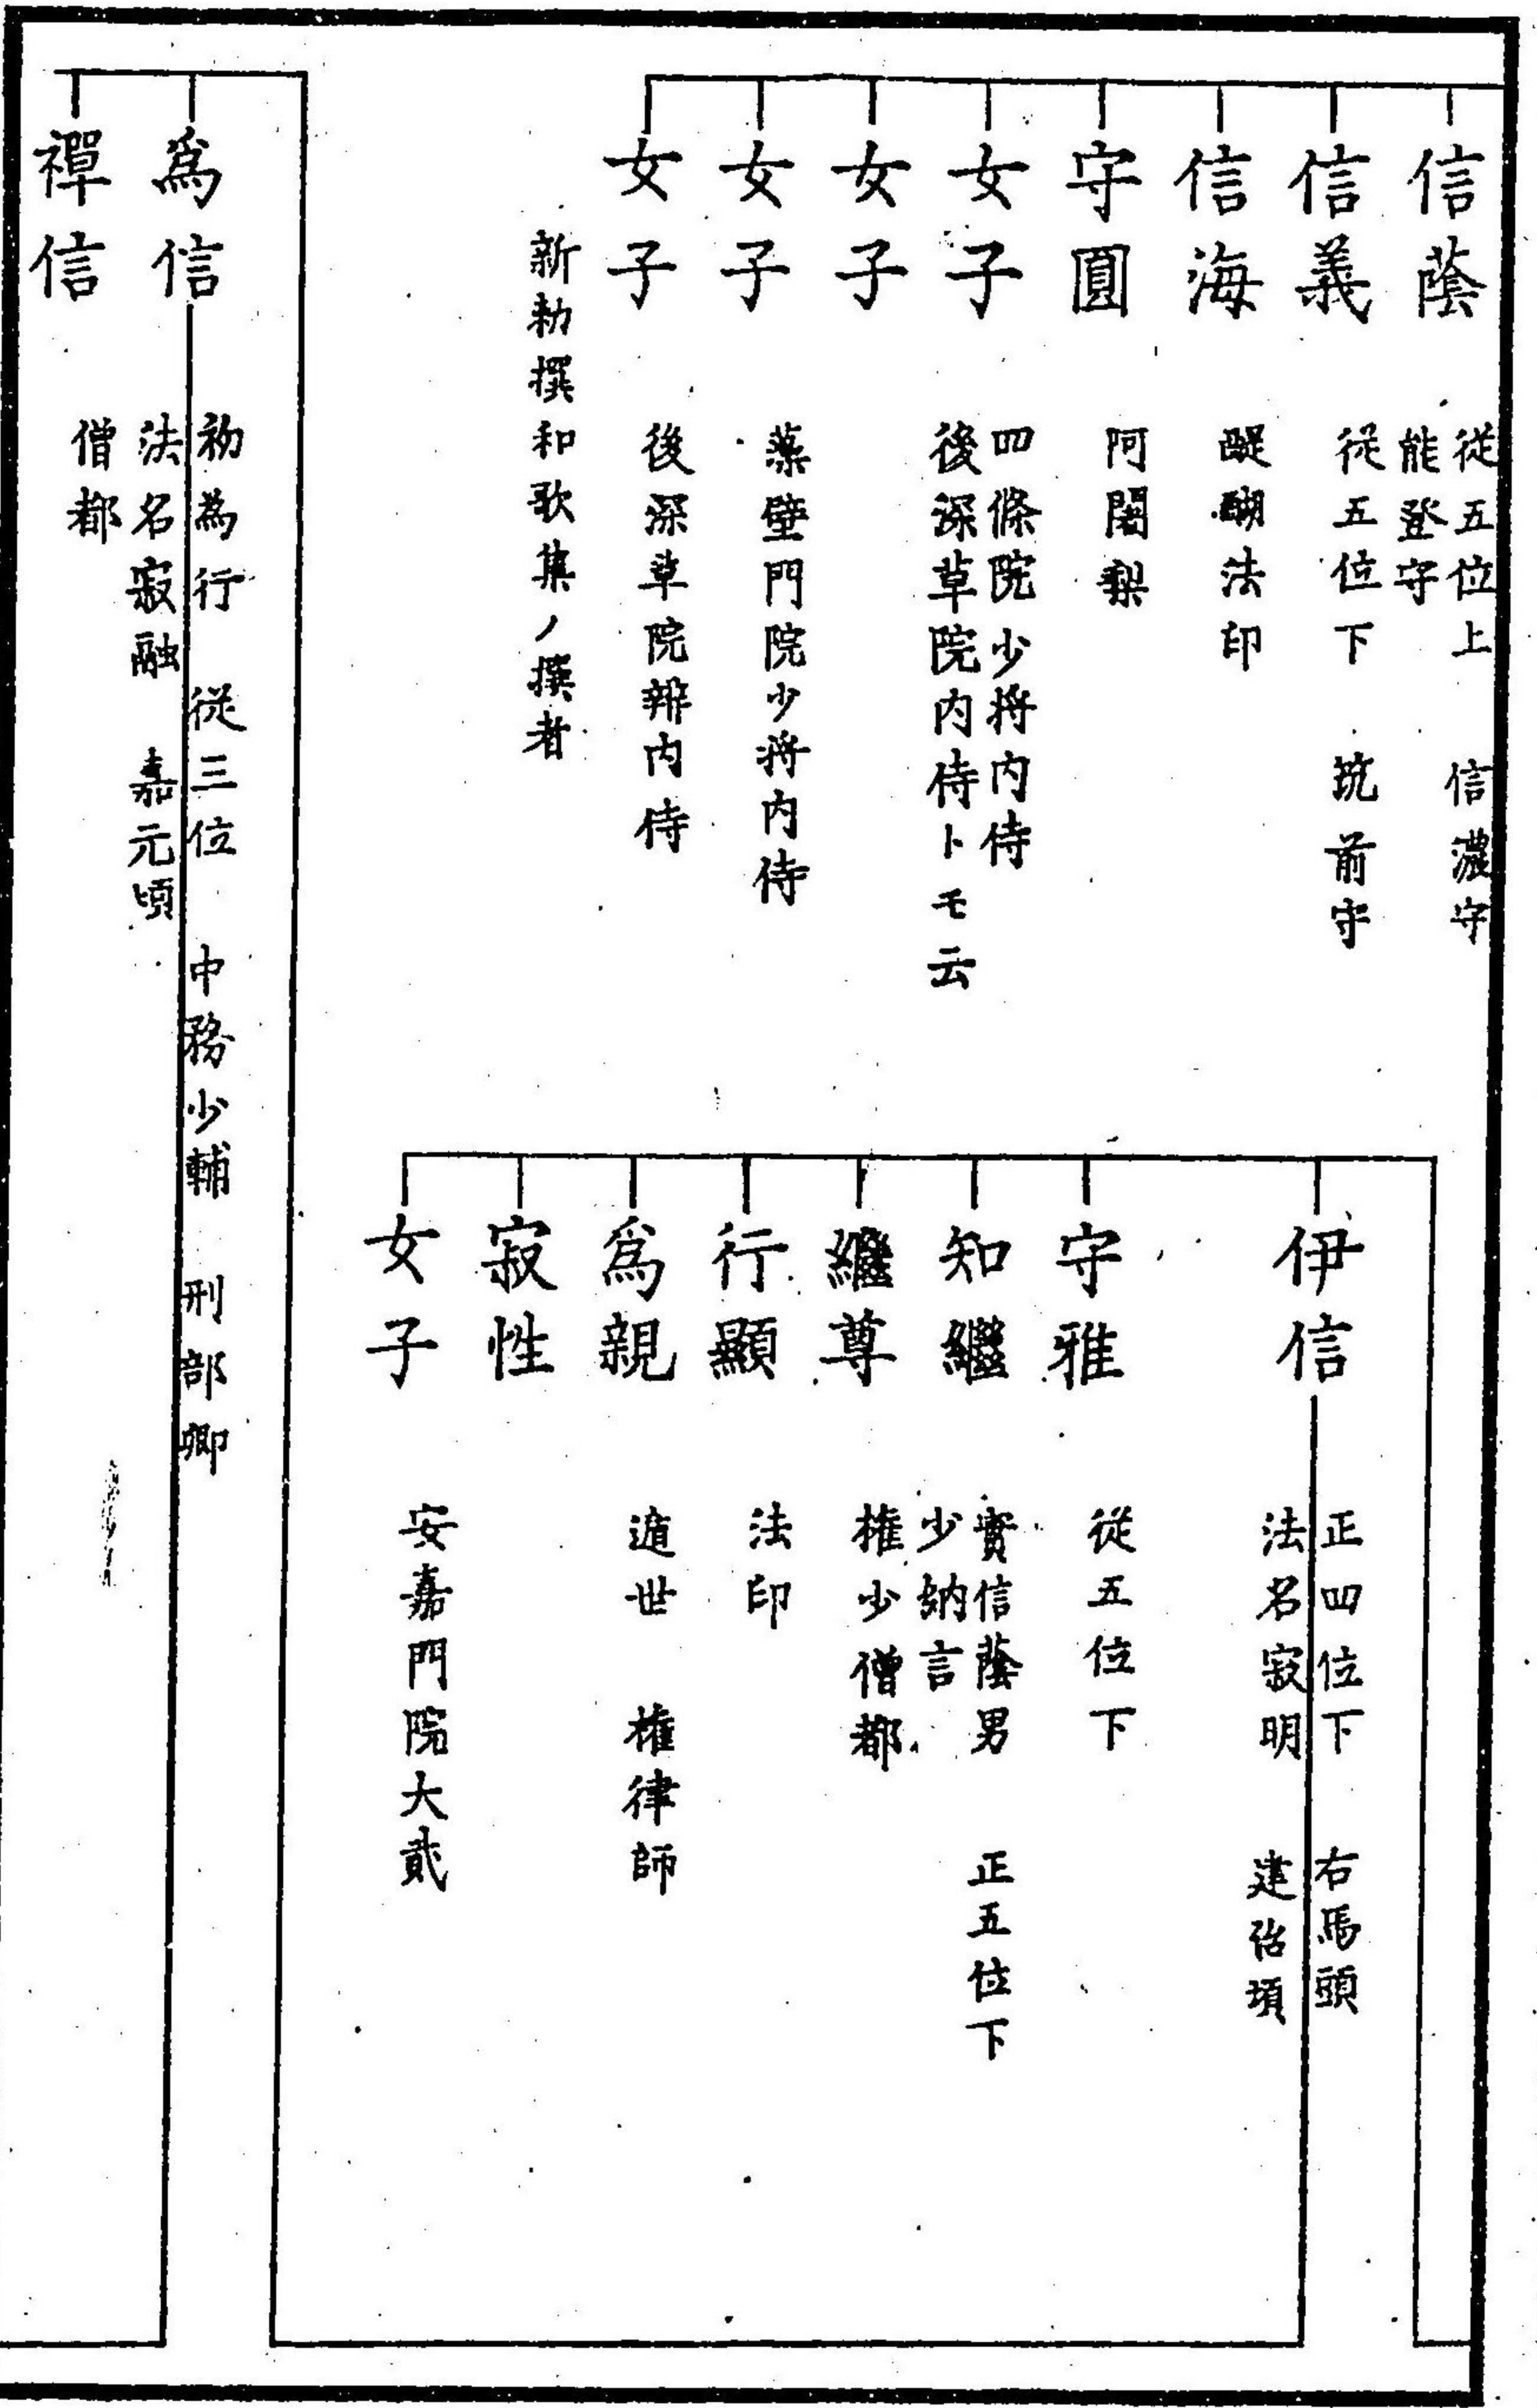 信蔭
従五位上 信濃守
能登守
信義
従五位下 筑前守
信海
醍醐法印
守圓
阿闍梨
女子
四條院少将内侍
後深草院内侍トモ云
女子
女子
藻壁門院少将内侍
女子
後深草院辨内侍
新勅撰和歌集ノ撰者
伊信
正四位下 右馬頭
法名寂明 建治頃
守雅
従五位下
知繼
實信蔭男 正五位下
少納言
繼尊
権少僧都
行顯
法印
爲親
遁世 権律師
寂性
女子
安嘉門院大貳
爲信
初為行 従三位 中務少輔 刑部卿
法名寂融 嘉元頃
禪信
僧都